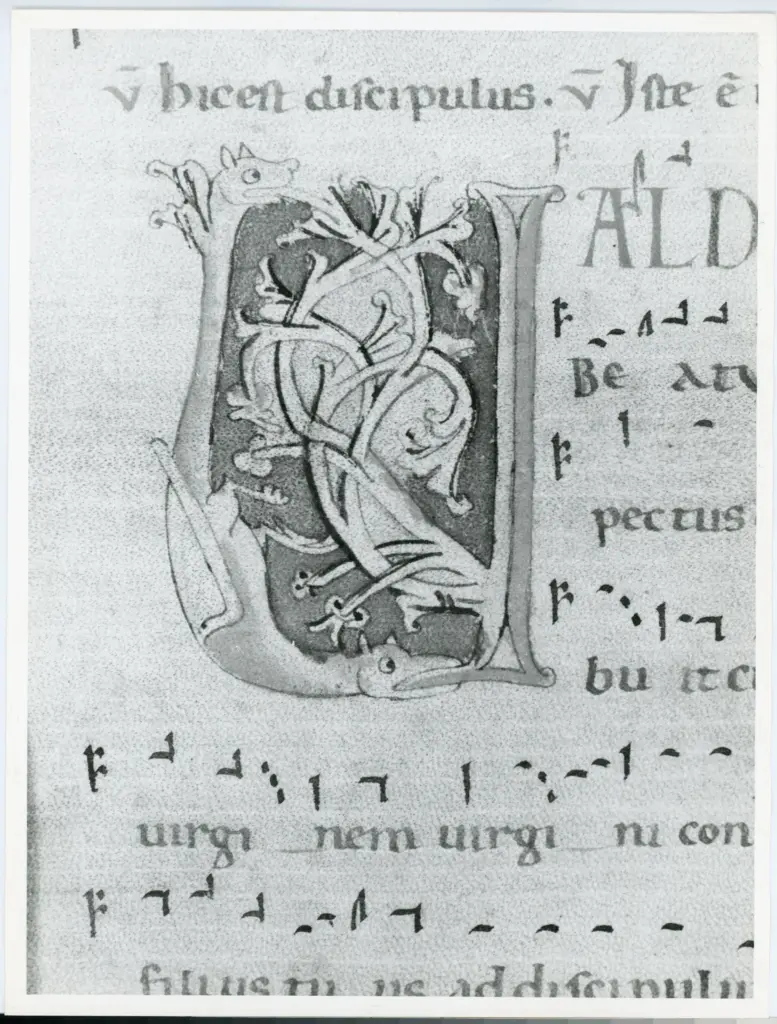 v̄ hic est discipulus. v̄ Iste ē
VALD
Be atu
pectus
bu it c
uirgi nem uirgi ni con
filius tu us ad discipulu